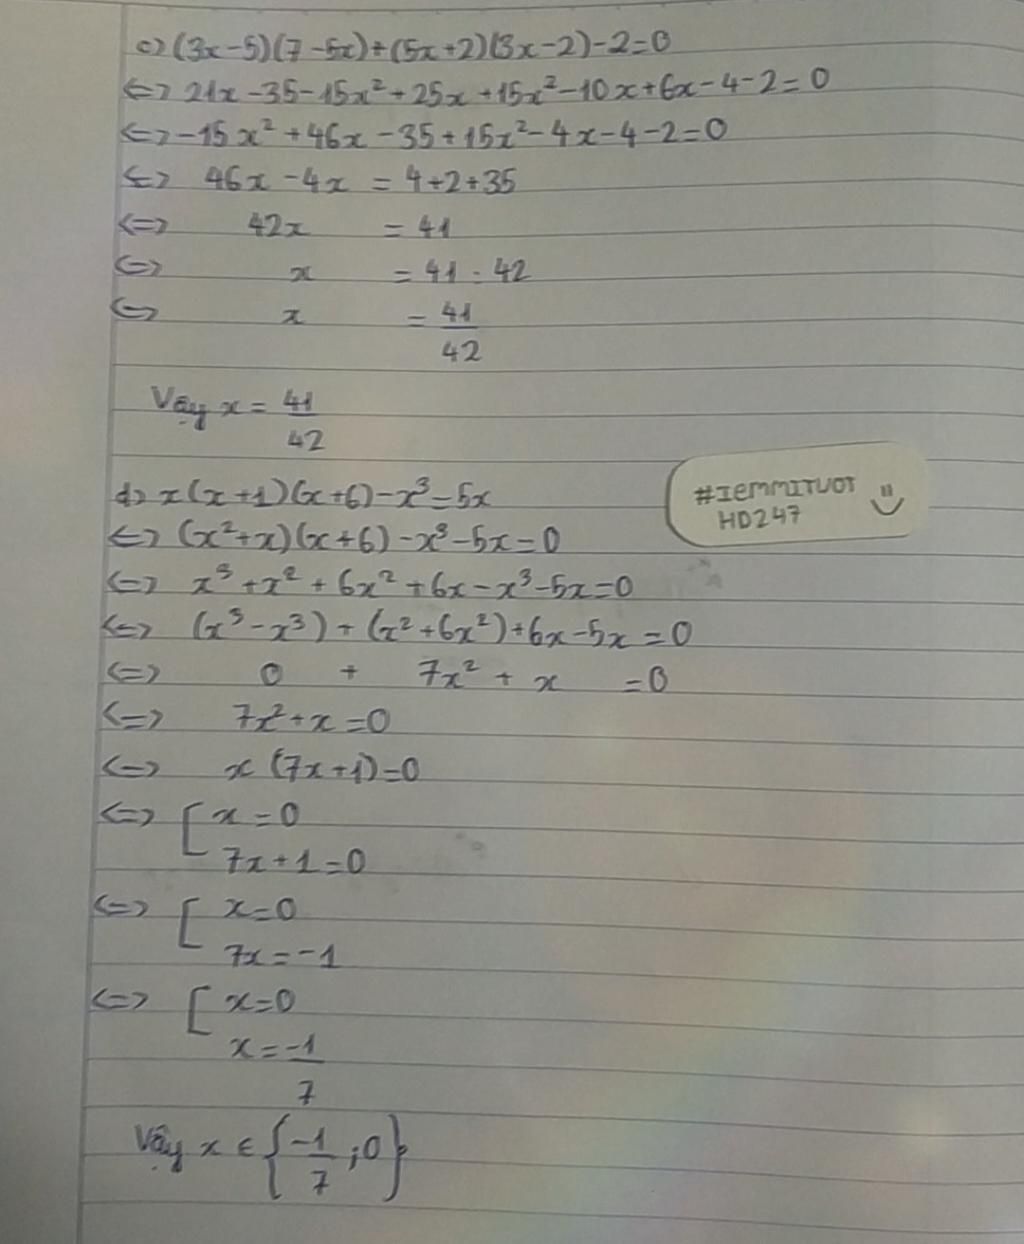 c) (3x-5)(7-5x)+(5x+2)(3x-2)-2=0
<=> 21x-35-15x²+25x+15x²-10x+6x-4-2=0
<=> -15x²+46x-35+15x²-4x-4-2=0
<=> 46x-4x = 4+2+35
<=> 42x = 41
<=> x = 41:42
<=> x = 41/42
Vậy x = 41/42
d) x(x+1)(x+6)-x³=5x
#IEMMITUOT
HD247
<=> (x²+x)(x+6)-x³-5x=0
<=> x³+x²+6x²+6x-x³-5x=0
<=> (x³-x³)+(x²+6x²)+6x-5x=0
<=> 0 + 7x²+x =0
<=> 7x²+x=0
<=> x(7x+1)=0
<=> [x=0
7x+1=0
<=> [x=0
7x=-1
<=> [x=0
x=-1/7
Vậy x ∈ {-1/7;0}